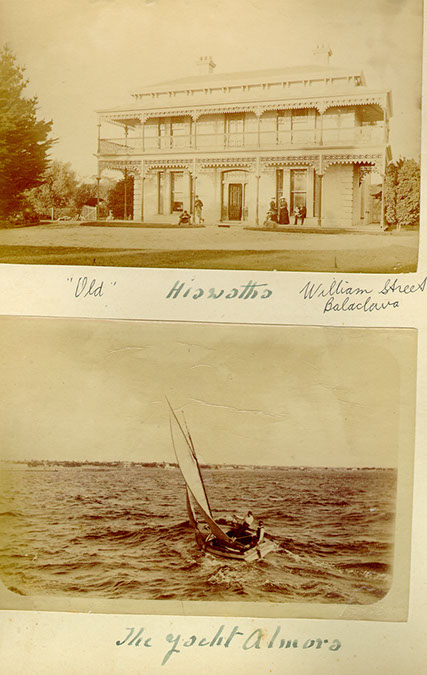 "Old" Hiawatha William Street
Balaclava
The Yacht Almora